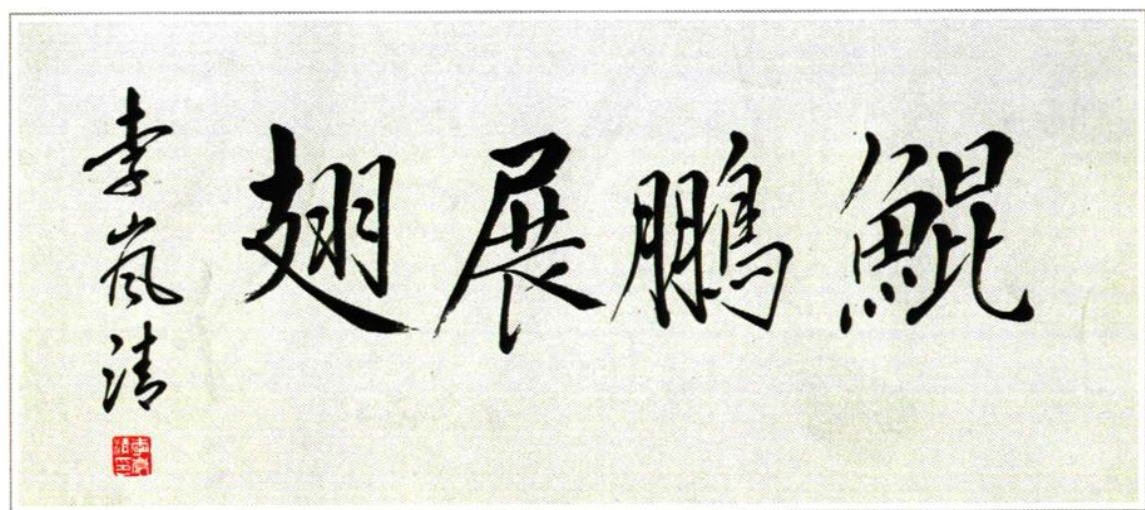 鯤鵬展翅
李嵐清